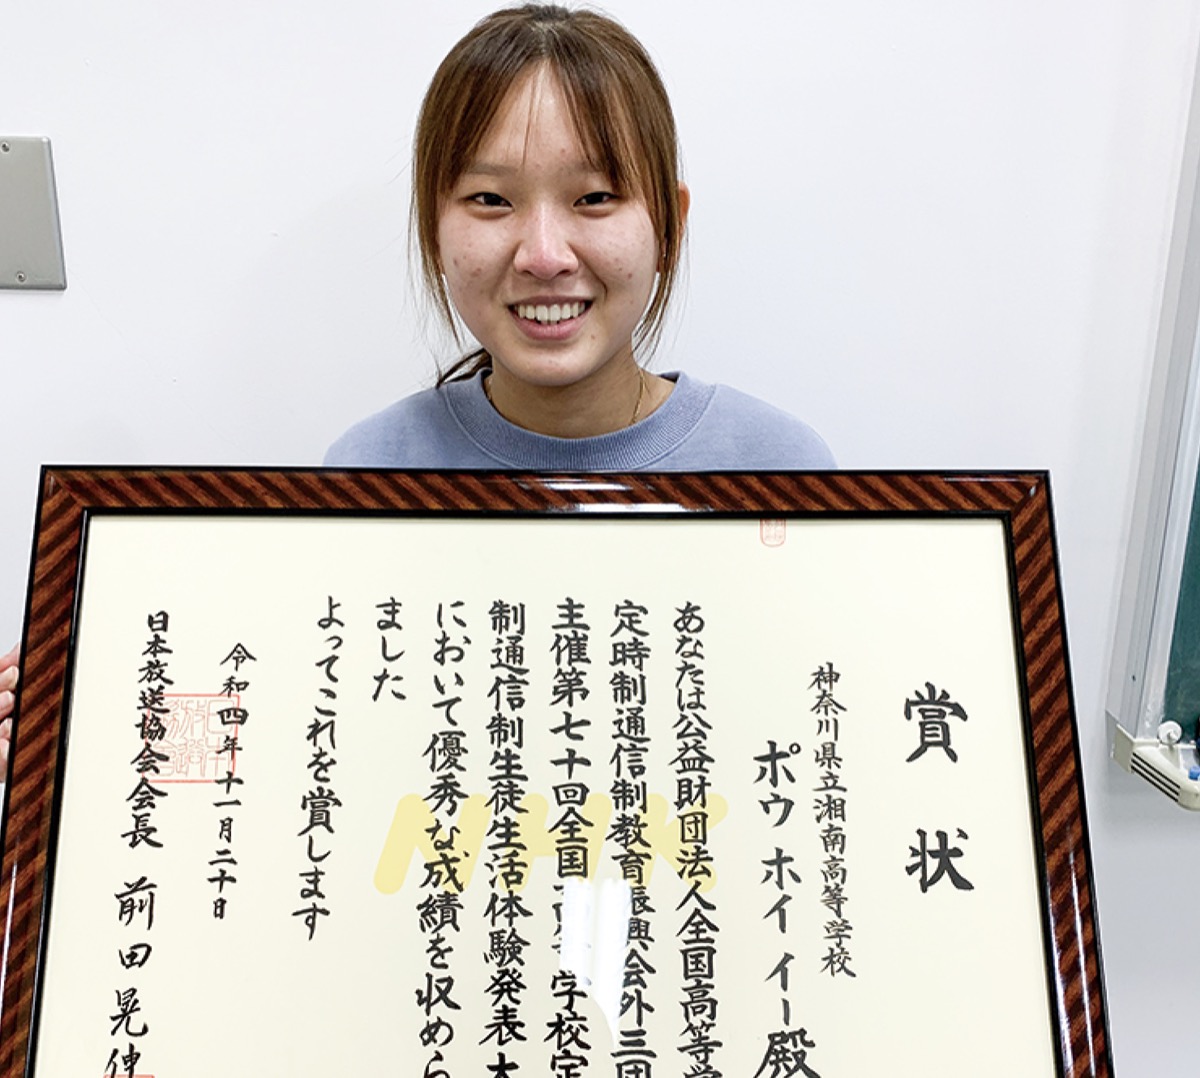 賞状
神奈川県立湘南高等学校
ポウ ホイ イー殿
あなたは公益財団法人全国高等学
定時制通信制教育振興会外三団
主催第七十回全国高等学校定
制通信制生徒生活体験発表大
において優秀な成績を収めら
ました
よってこれを賞します
令和四年十一月二十日
日本放送協会会長 前田晃伸
NHK